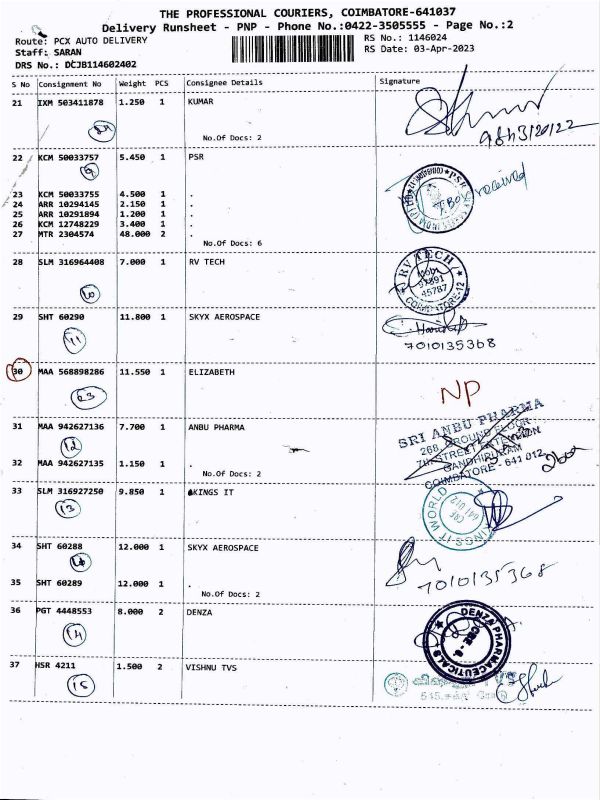 THE PROFESSIONAL COURIERS, COIMBATORE-641037
Delivery Runsheet - PNP - Phone No.:0422-3505555 - Page No.:2
Route: PCX AUTO DELIVERY RS No.: 1146024
Staff: SARAN RS Date: 03-Apr-2023
DRS No.: DCJB114602402
S No Consignment No Weight PCS Consignee Details Signature
21 IXM 503411878 1.250 1 KUMAR
No.Of Docs: 2
22 KCM 50033757 5.450 1 PSR
9
23 KCM 50033755 4.500 1 .
24 ARR 10294145 2.150 1 .
25 ARR 10291894 1.200 1 .
26 KCM 12748229 3.400 1 .
27 MTR 2304574 48.000 2 .
No.Of Docs: 6
received
28 SLM 316964408 7.000 1 RV TECH
10
RV TECH
Mob:
97891
45787
COIMBATORE-12
29 SHT 60290 11.800 1 SKYX AEROSPACE
11
7010135368
30 MAA 568898286 11.550 1 ELIZABETH
23
NP
31 MAA 942627136 7.700 1 ANBU PHARMA
12
SRI ANBU PHARMA
268, GROUND FLOOR
7th STREET EXTENSION
GANDHIPURAM
COIMBATORE - 641 012
32 MAA 942627135 1.150 1 .
No.Of Docs: 2
33 SLM 316927250 9.850 1 KINGS IT
13
KINGS IT WORLD
CBE
641 012
34 SHT 60288 12.000 1 SKYX AEROSPACE
7010135368
35 SHT 60289 12.000 1 .
No.Of Docs: 2
36 PGT 4448553 8.000 2 DENZA
14
DENZA PHARMACEUTICALS
37 HSR 4211 1.500 2 VISHNU TVS
15